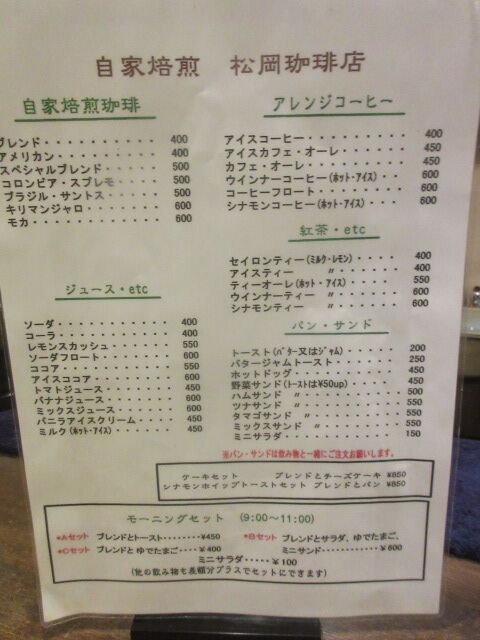 自家焙煎　松岡珈琲店
自家焙煎珈琲
ブレンド・・・・・・・・・・400
アメリカン・・・・・・・・・400
スペシャルブレンド・・・・・500
コロンビア・スプレモ・・・・500
ブラジル・サントス・・・・・500
キリマンジャロ・・・・・・・600
モカ・・・・・・・・・・・・600
アレンジコーヒー
アイスコーヒー・・・・・・・・400
アイスカフェ・オーレ・・・・・450
カフェ・オーレ・・・・・・・・450
ウインナーコーヒー(ホット・アイス)・・・600
コーヒーフロート・・・・・・・600
シナモンコーヒー(ホット・アイス)・・・600
紅茶・etc
セイロンティー(ミルク・レモン)・・・・400
アイスティー　〃・・・・・・400
ティーオーレ(ホット・アイス)・・・・550
ウインナーティー　〃・・・・・・600
シナモンティー　〃・・・・・・600
ジュース・etc
ソーダ・・・・・・・・・・・400
コーラ・・・・・・・・・・・400
レモンスカッシュ・・・・・・550
ソーダフロート・・・・・・・600
ココア・・・・・・・・・・・550
アイスココア・・・・・・・・600
トマトジュース・・・・・・・450
バナナジュース・・・・・・・600
ミックスジュース・・・・・・600
バニラアイスクリーム・・・・450
ミルク(ホット・アイス)・・・・・450
パン・サンド
トースト(バター又はジャム)・・・・・200
バタージャムトースト・・・・・250
ホットドッグ・・・・・・・・450
野菜サンド(トーストは¥50up)・・・450
ハムサンド　〃・・・・・・500
ツナサンド　〃・・・・・・550
タマゴサンド　〃・・・・・550
ミックスサンド　〃・・・・550
ミニサラダ・・・・・・・・150
※パン・サンドは飲み物と一緒にご注文お願いします。
ケーキセット　ブレンドとチーズケーキ ¥850
シナモンホイップトーストセット ブレンドとパン ¥850
モーニングセット　(9:00～11:00)
*Aセット ブレンドとトースト・・・・・¥450
*Bセット ブレンドとサラダ、ゆでたまご、
ミニサンド・・・・・・・・¥600
*Cセット ブレンドと ゆでたまご・・・・¥400
ミニサラダ・・・・・¥100
(他の飲み物も差額分プラスでセットにできます)